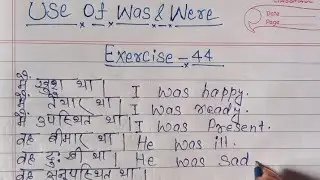 Use Of Was & Were
Date
Page
Exercise - 44
मैं खुश था। I was happy.
मैं तैयार था। I was ready.
मैं उपस्थित था। I was Present.
वह बीमार था। He was ill.
वह दुःखी था। He was sad
वह अनुपस्थित था।